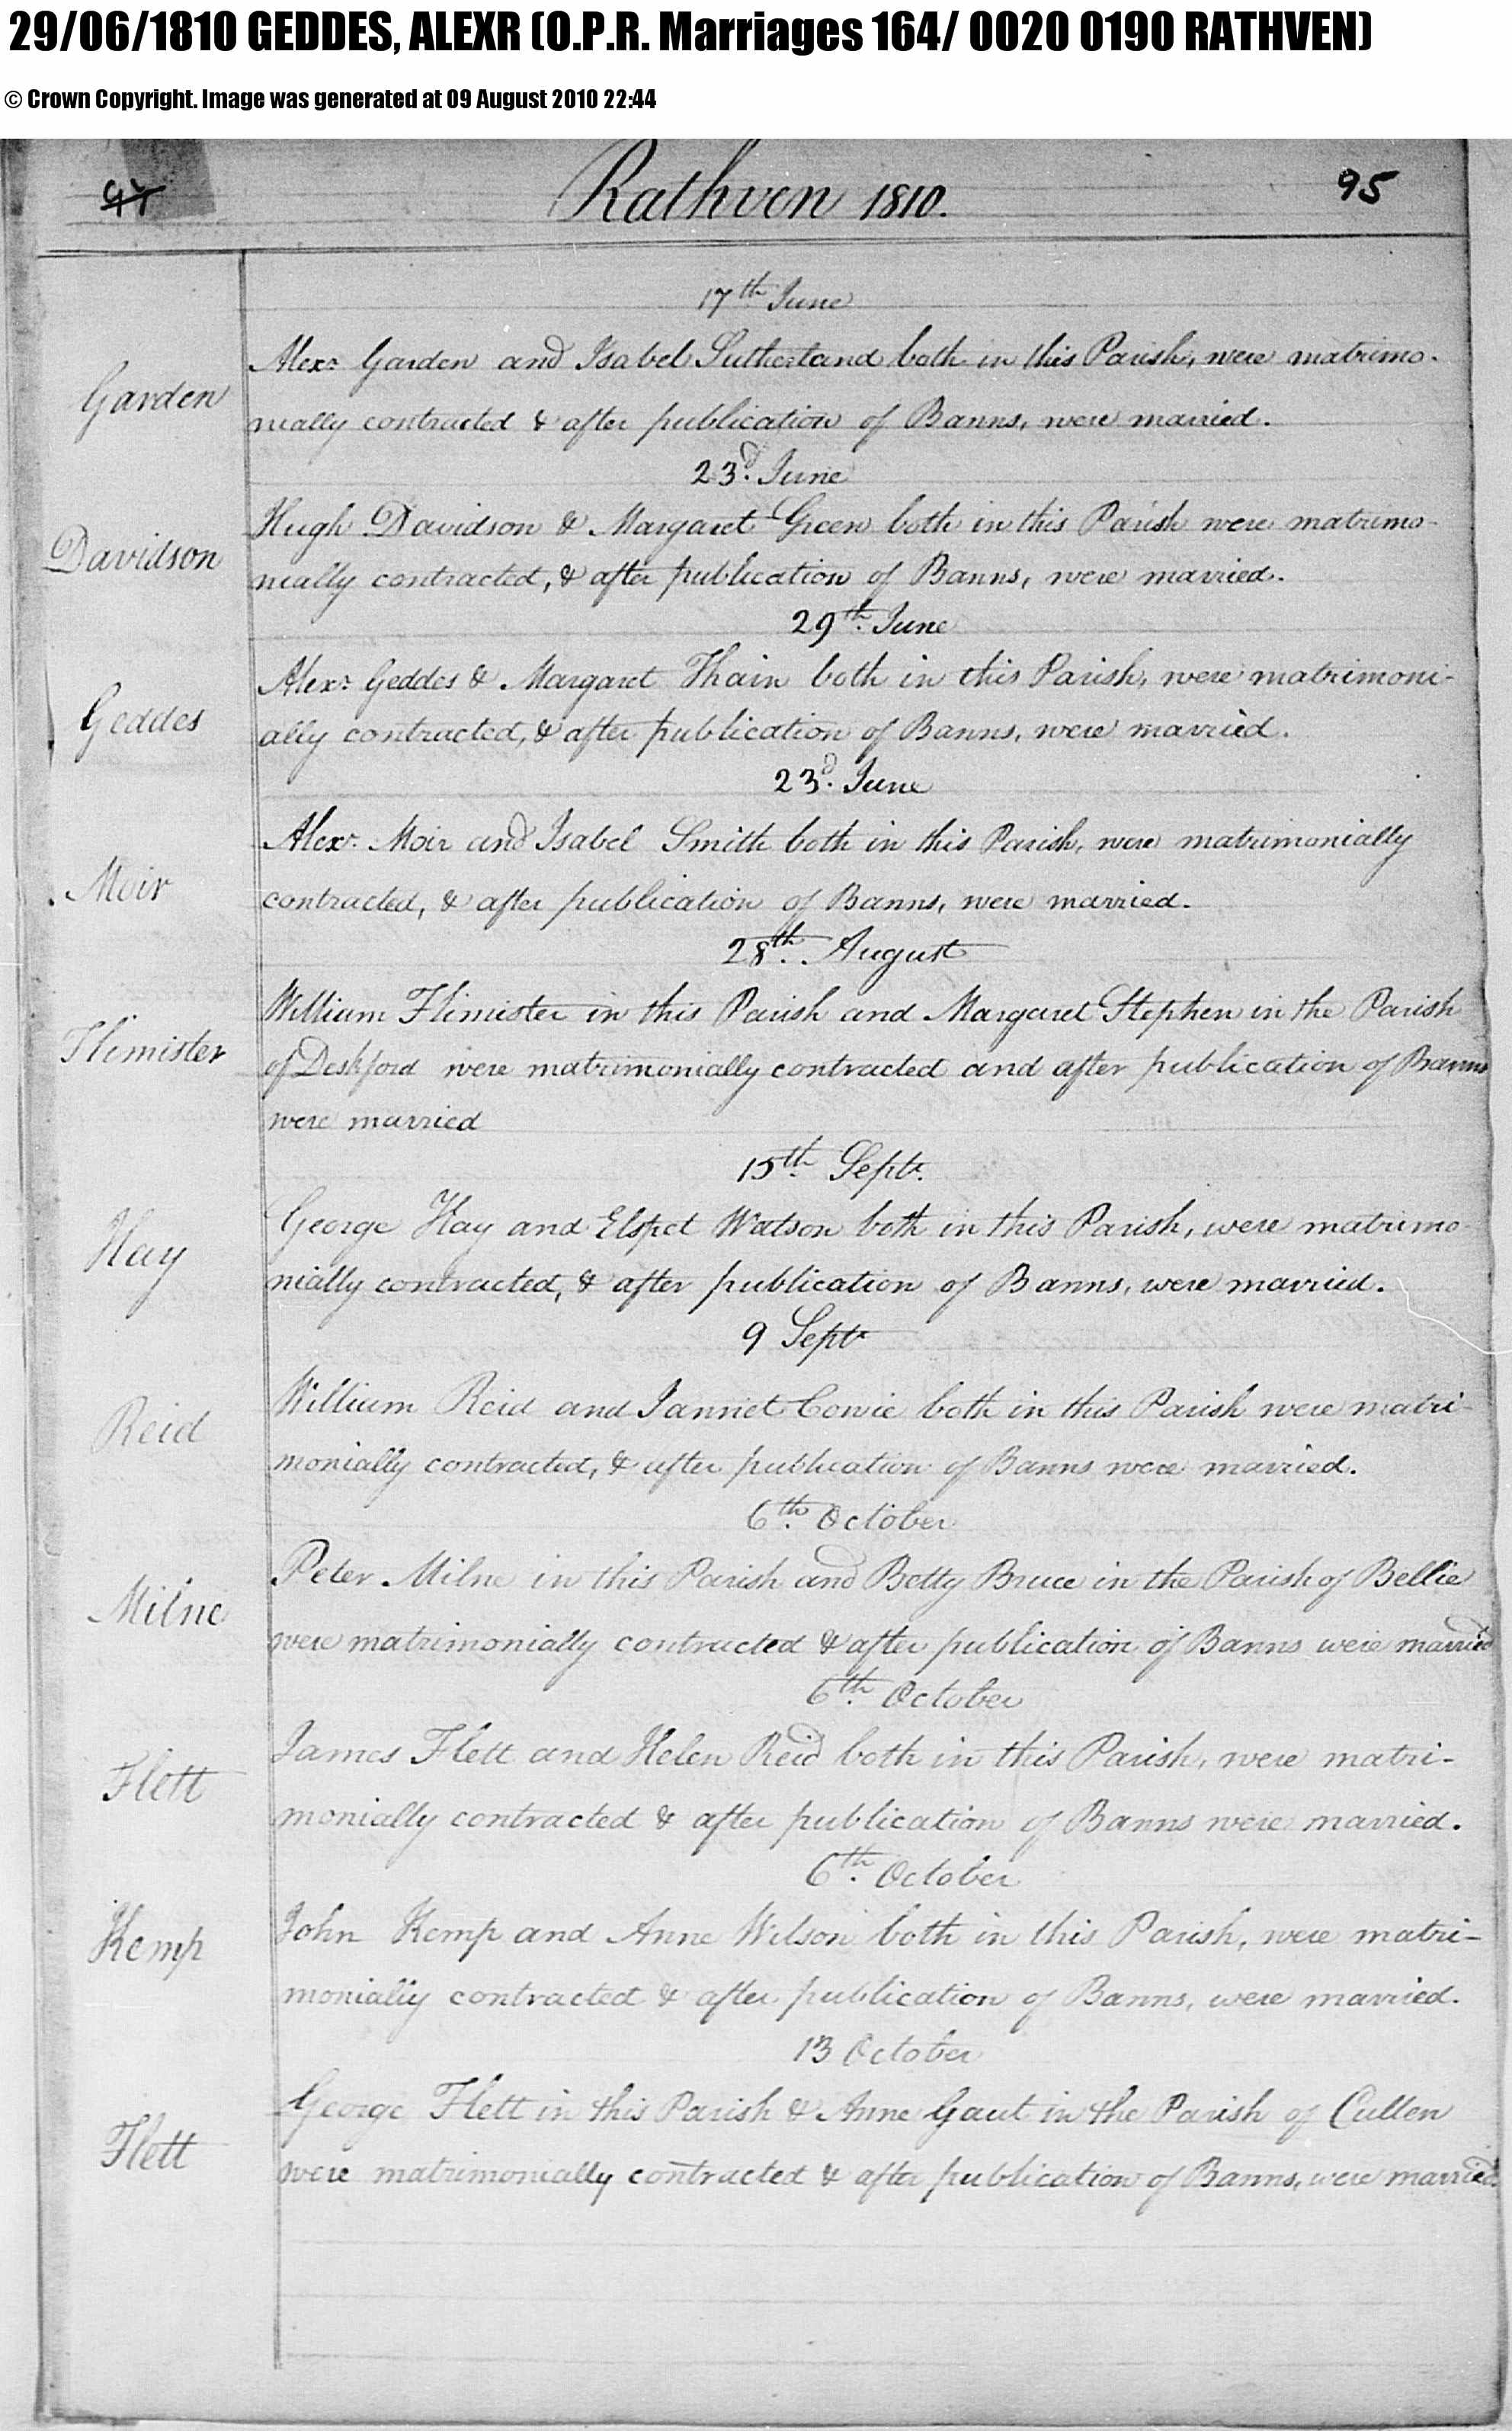 29/06/1810 GEDDES, ALEXR (O.P.R. Marriages 164/ 0020 0190 RATHVEN)
© Crown Copyright. Image was generated at 09 August 2010 22:44
Rathven 1810.
95
17th June
Garden
Alexr. Garden and Isabel Sutherland both in this Parish, were matrimo-
nially contracted & after publication of Banns, were married.
23d. June
Davidson
Hugh Davidson & Margaret Green both in this Parish were matrimo-
nially contracted, & after publication of Banns, were married.
29th. June
Geddes
Alexr. Geddes & Margaret Thain both in this Parish, were matrimoni-
ally contracted, & after publication of Banns, were married.
23d. June
Moir
Alexr. Moir and Isabel Smith both in this Parish, were matrimonially
contracted, & after publication of Banns, were married.
28th. August
Flimister
William Flimister in this Parish and Margaret Stephen in the Parish
of Deskford were matrimonially contracted and after publication of Banns
were married
15th. Septr.
Hay
George Hay and Elspet Watson both in this Parish, were matrimo
nially contracted, & after publication of Banns, were married.
9 Septr
Reid
William Reid and Jannet Cowie both in this Parish were matri-
monially contracted, & after publication of Banns were married.
6th. October
Milne
Peter Milne in this Parish and Betty Bruce in the Parish of Bellie
were matrimonially contracted & after publication of Banns were married
6th. October
Flett
James Flett and Helen Reid both in this Parish, were matri-
monially contracted & after publication of Banns were married.
6th. October
Kemp
John Kemp and Anne Wilson both in this Parish, were matri-
monially contracted & after publication of Banns, were married.
13 October
Flett
George Flett in this Parish & Anne Gaut in the Parish of Cullen
were matrimonially contracted & after publication of Banns, were married.